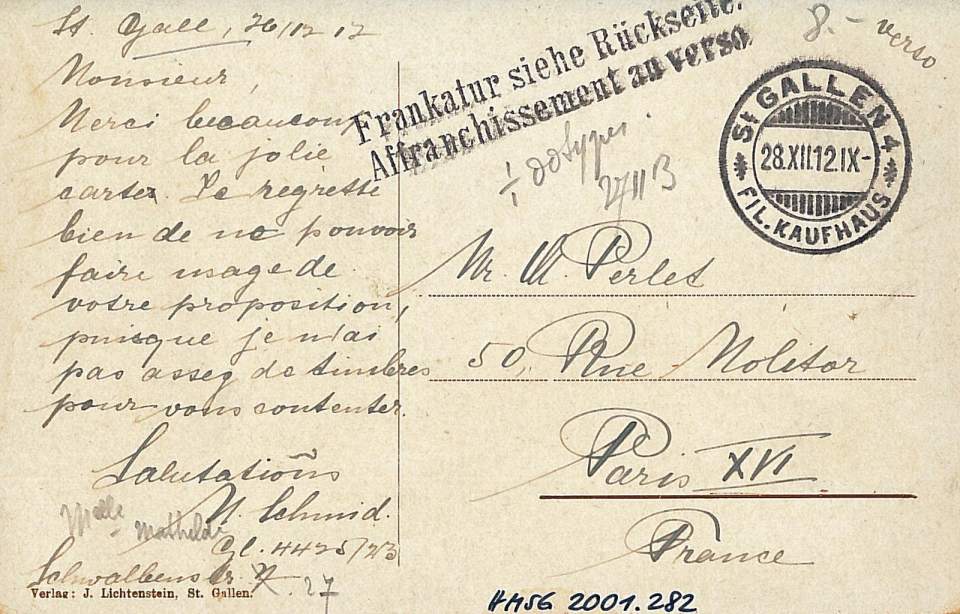 St. Gall, 26/12 12
Monsieur,
Merci beaucoup
pour la jolie
carte. Je regrette
bien de ne pouvoir
faire usage de
votre proposition,
puisque je n'ai
pas assez de timbres
pour vous contenter.
Salutations
M. Schmid.
Melle Mathilde
Gl. 4425/23
Schwalbenstr. 7. 27
Verlag: J. Lichtenstein, St. Gallen.
Frankatur siehe Rückseite.
Affranchissement au verso.
8.- verso
27 II B
ST GALLEN 4
28.XII.12.IX-
FIL. KAUFHAUS
Mr. Perlet
50, Rue Molitor
Paris XVI
France
HM56 2001.282